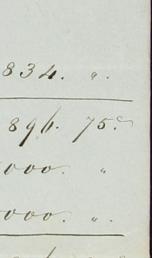 834. "
896. 75.c
000. "
000. "